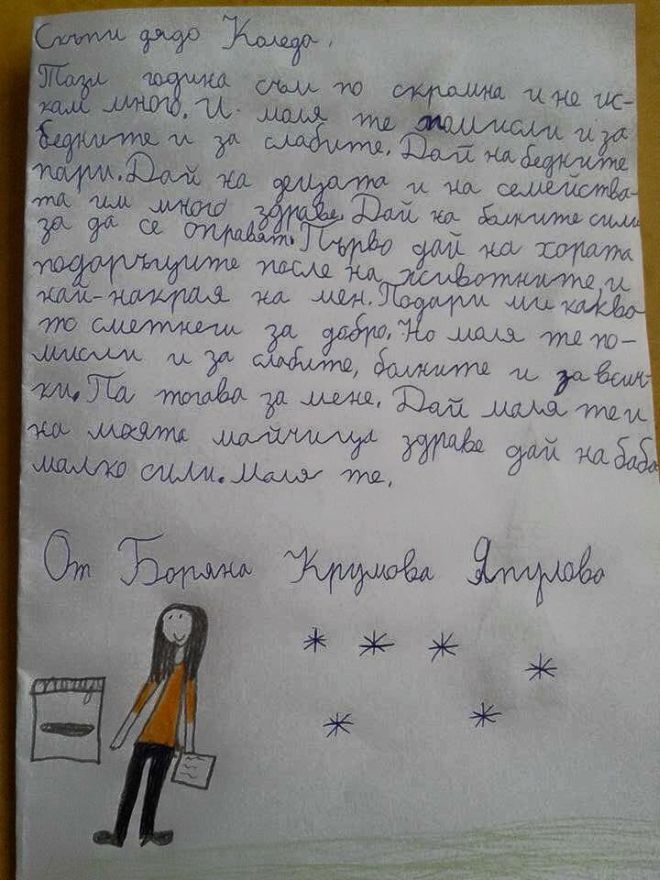 Скъпи дядо Коледа,
Тази година съм по скромна и не ис-
кам много. И моля те помисли и за
бедните и за слабите. Дай на бедните
пари. Дай на децата и на семейства-
та им много здраве. Дай на болните сили
за да се оправят. Първо дай на хората
подаръците после на животните, и
най-накрая на мен. Подари ми какво
то сметнеш за добро. Но моля те по-
мисли и за слабите, болните и за всич-
ки. Па тогава за мене. Дай моля те и
на моята майчица здраве дай на баба
малко сили. Моля те.
От Боряна Крумова Япулова